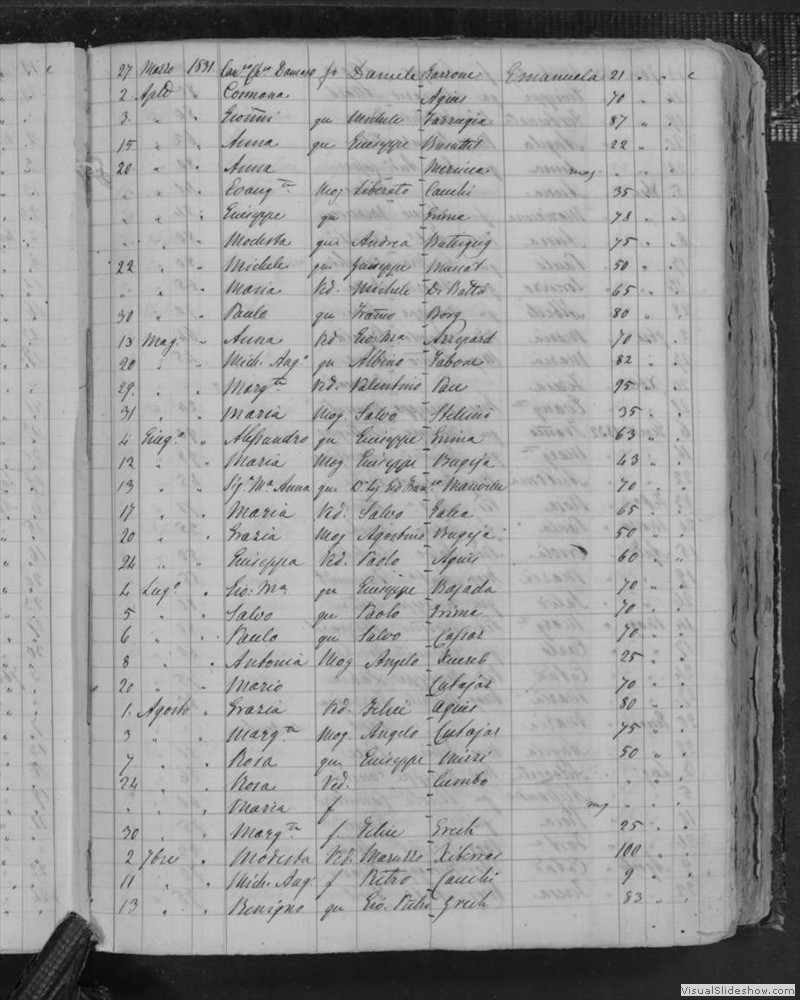 27 Marzo 1831 Damaso f Daniele Garrone Emanuela 21 " " c
2 Aple Cosmana Agius 70
3 " " Giovni qu Michele Farrugia 87
15 " " Anna qu Giuseppe Busuttil 22
20 " " Anna mag
" " " Evangta Mog Liberato Cauchi 35
" " " Giuseppe qu Grima 78
" " Modesta qu Andrea Buttigieg 75
22 " " Michele qu Giuseppe Muscat 50
" " " Maria Ved. Michele Di Batto 65
30 " " Paulo qu Franco Borg 80
13 Mag. " Anna Ved Gio: Ma 70
20 " " Mich: Ang.o qu Albino Tabone 82
29 " " Margta Ved. Valentino Pace 95
31 " " Maria Mog. Salvo Stellini 35
4 Giug.o " Alessandro qu Giuseppe Grima 63
12 " " Maria Mog Giuseppe Bugeja 43
13 " " Sig.ra Ma Anna qu 70
17 " " Maria Ved. Salvo Galea 65
20 " " Grazia Mog Agostino Bugeja 50
24 " " Giuseppa Ved. Paolo Agius 60
4 Lug.o " Gio: Ma qu Giuseppe Bajada 70
5 " " Salvo qu Paolo Grima 70
6 " " Paulo qu Salvo Cassar 70
8 " " Antonia Mog Angelo Xuereb 25
20 " " Mario Cutajar 70
1. Agosto " Grazia Ved. Felici Agius 80
3 " " Margta Mog. Angelo Cutajar 75
7 " " Rosa qu Giuseppe Mizzi 50
24 " " Rosa Ved. Cumbo
" " " Maria f mag
30 " " Margta f. Felice Grech 25
2 7bre " Modesta Ved. Xiberras 100
11 " " Mich: Ang f Pietro Cauchi 9
13 " " Benigno qu Gio: Pietro Grech 83
VisualSlideshow.com